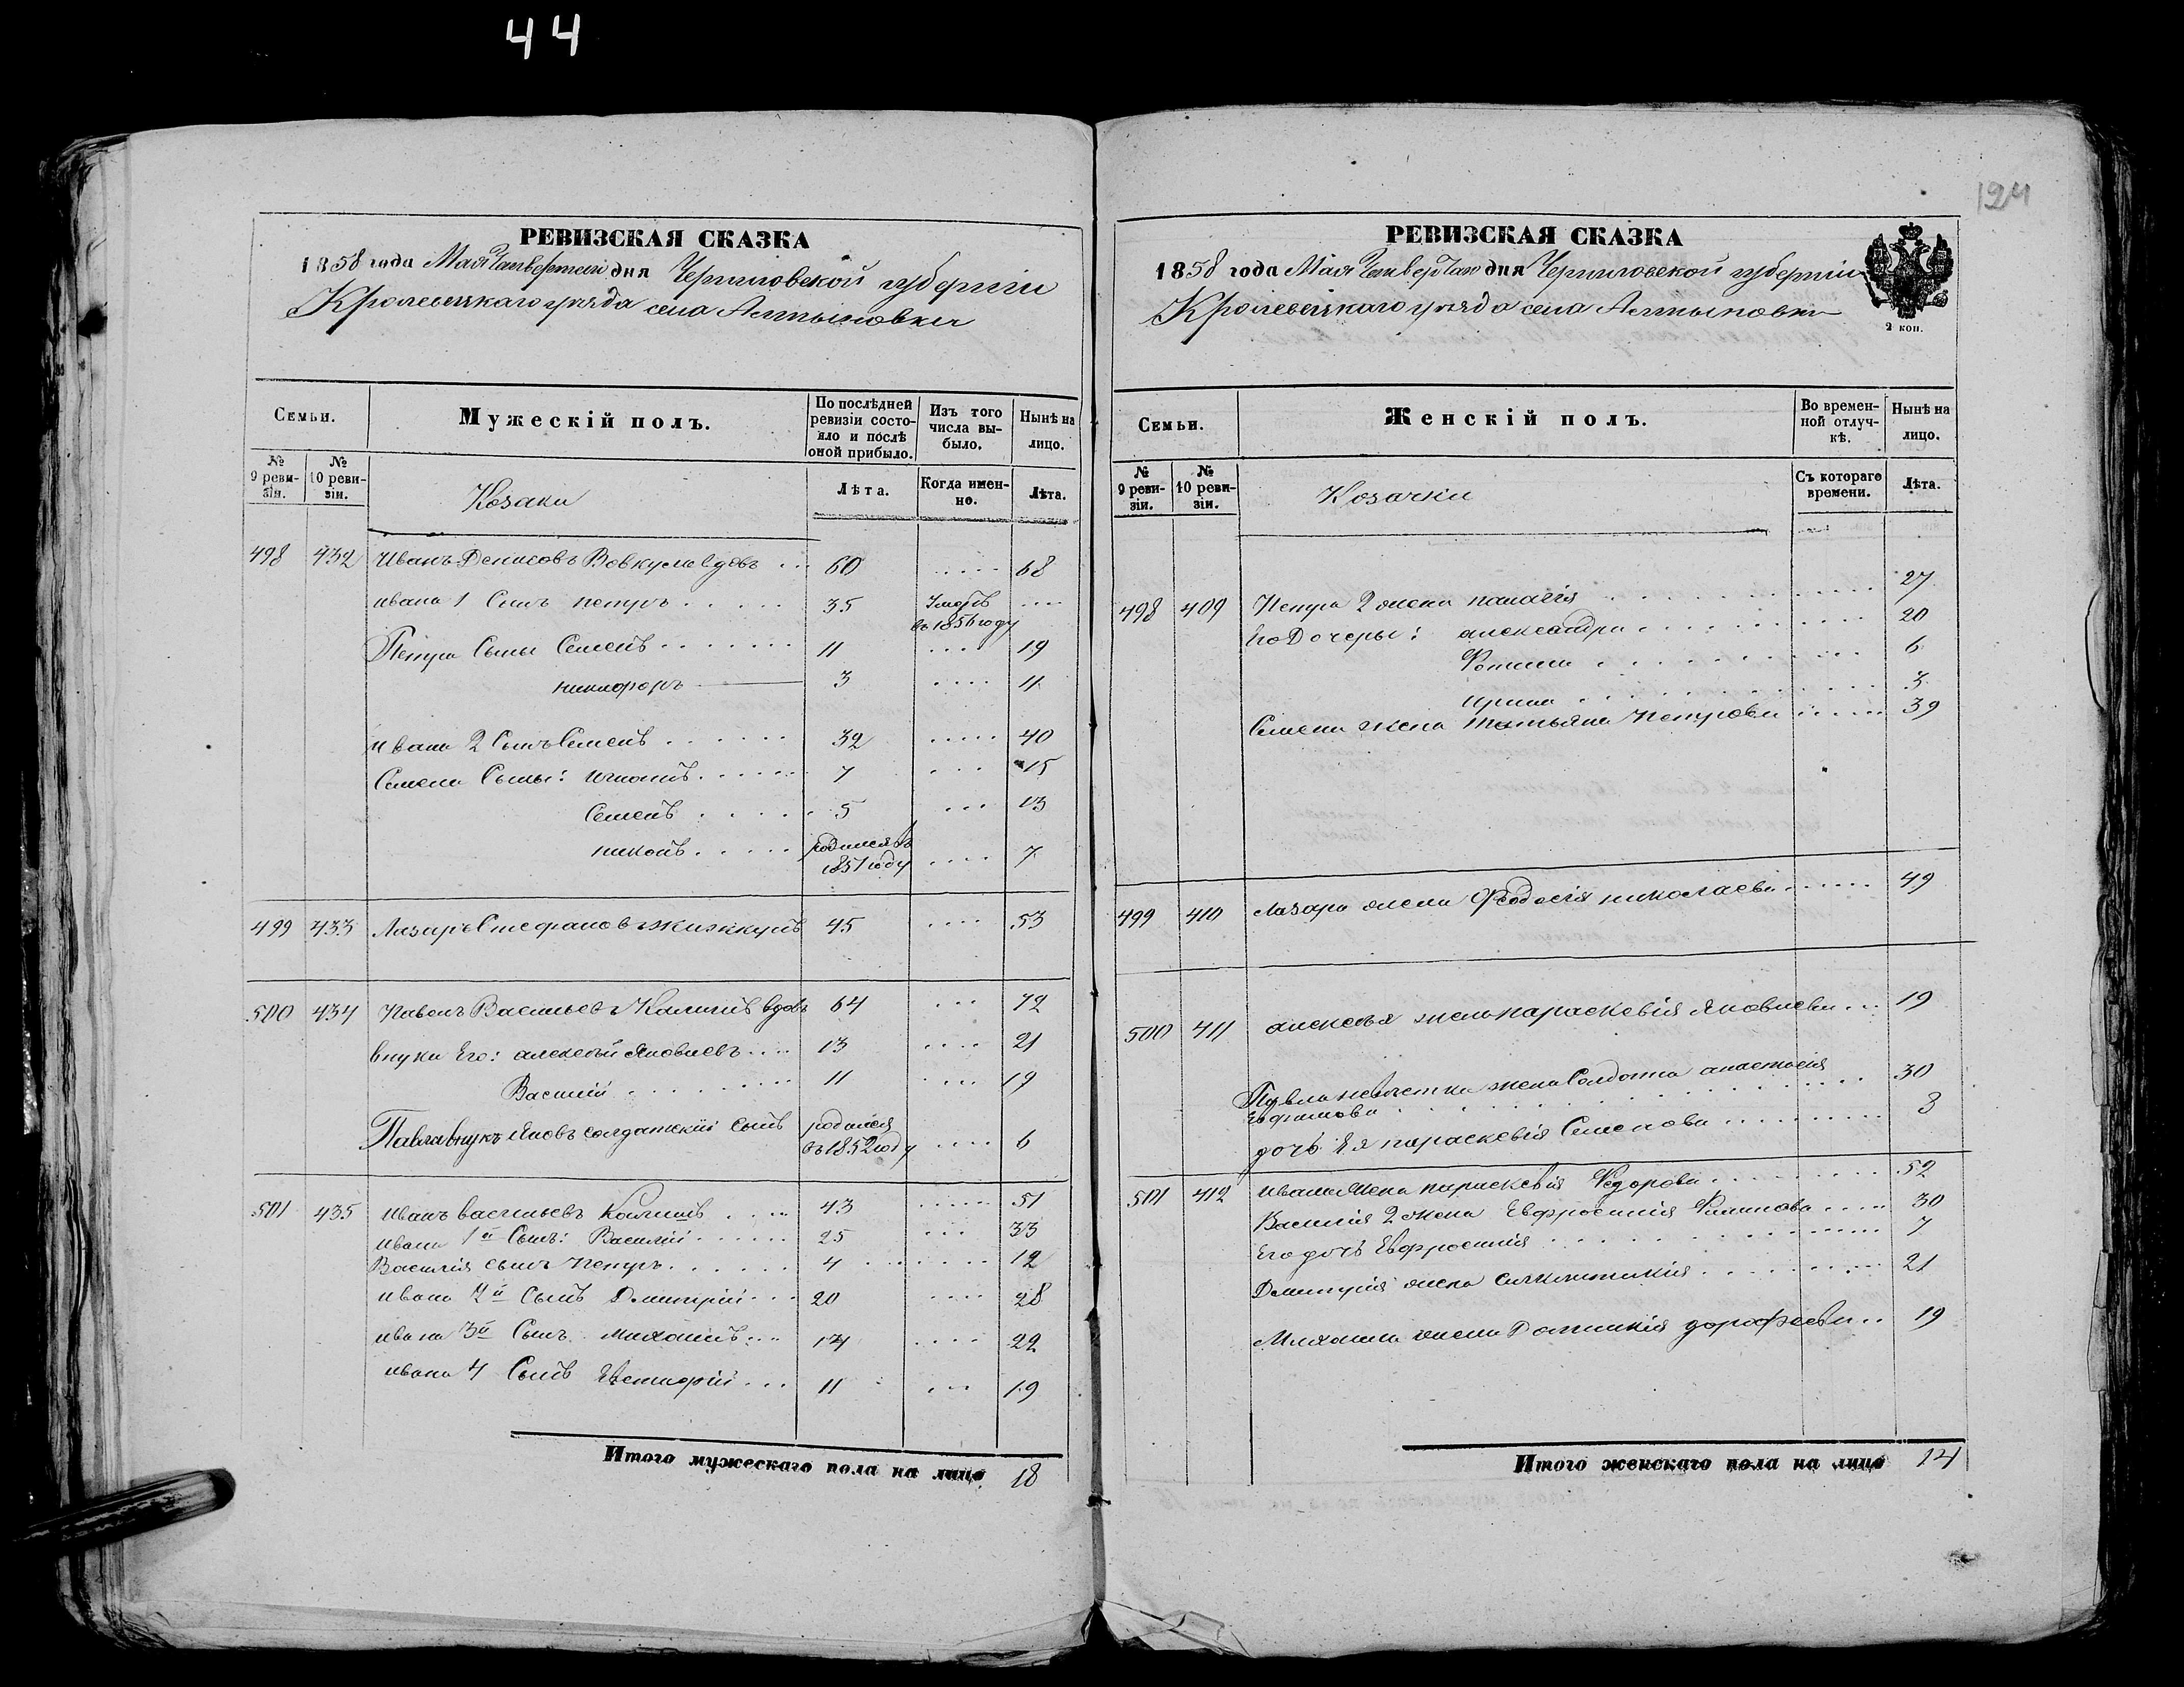 44
РЕВИЗСКАЯ СКАЗКА
1858 года Мая Четвертаго дня Черниговской губерніи
Кролевецкаго уѣзда села Алтыновки
Семьи.
Мужескій полъ.
По послѣдней ревизіи состояло и послѣ оной прибыло.
Изъ того числа выбыло.
Нынѣ на лицо.
№ 9 ревизіи.
№ 10 ревизіи.
Козаки
Лѣта.
Когда именно.
Лѣта.
498 432 Иванъ Денисовъ Вовкума вдовъ 60 68
ивана 1 Сынъ петръ 35 Умеръ въ 1856 году
Петра Сыны Семенъ 11 19
никифоръ 3 11
ивана 2 Сынъ Семенъ 32 40
Семена Сыны: игнатъ 7 15
Семенъ 5 13
никонъ родился въ 1851 году 7
499 433 Лазарь Стефановъ 45 53
500 434 Павелъ Васильевъ Калишъ вдовъ 64 72
внуки Его: алексѣй Яковлевъ 13 21
Василій 11 19
Павла внукъ Яковъ солдатскій сынъ родился въ 1852 году 6
501 435 иванъ васильевъ Калишъ 43 51
ивана 1й Сынъ: Василій 25 33
Василія сынъ Петръ 4 12
ивана 2й Сынъ Дмитрій 20 28
ивана 3й Сынъ Михаилъ 14 22
ивана 4 Сынъ 11 19
Итого мужескаго пола на лицо 18
124
РЕВИЗСКАЯ СКАЗКА
1858 года Мая Четвертаго дня Черниговской губерніи
Кролевецкаго уѣзда села Алтыновки
2 коп.
Семьи.
Женскій полъ.
Во временной отлучкѣ.
Нынѣ на лицо.
№ 9 ревизіи.
№ 10 ревизіи.
Козачки
Съ котораго времени.
Лѣта.
498 409 Петра 2 жена палагія 27
Его Дочеры: александра 20
Фотина 6
ирина 3
Семена жена Татьяна Петрова 39
499 410 Лазаря жена Феодосія николаева 49
500 411 алексѣя жена параскевія Яковлева 19
Павла невѣстка жена Солдатка анастасія Евфимова 30
дочь Ея параскевія Семенова 3
501 412 ивана Жена параскевія Федорова 52
Василія 2 жена Евфросинія Филипова 30
Его дочь Евфросинія 7
Дмитрія жена 21
Михаила жена Домникія дорофѣева 19
Итого женскаго пола на лицо 14